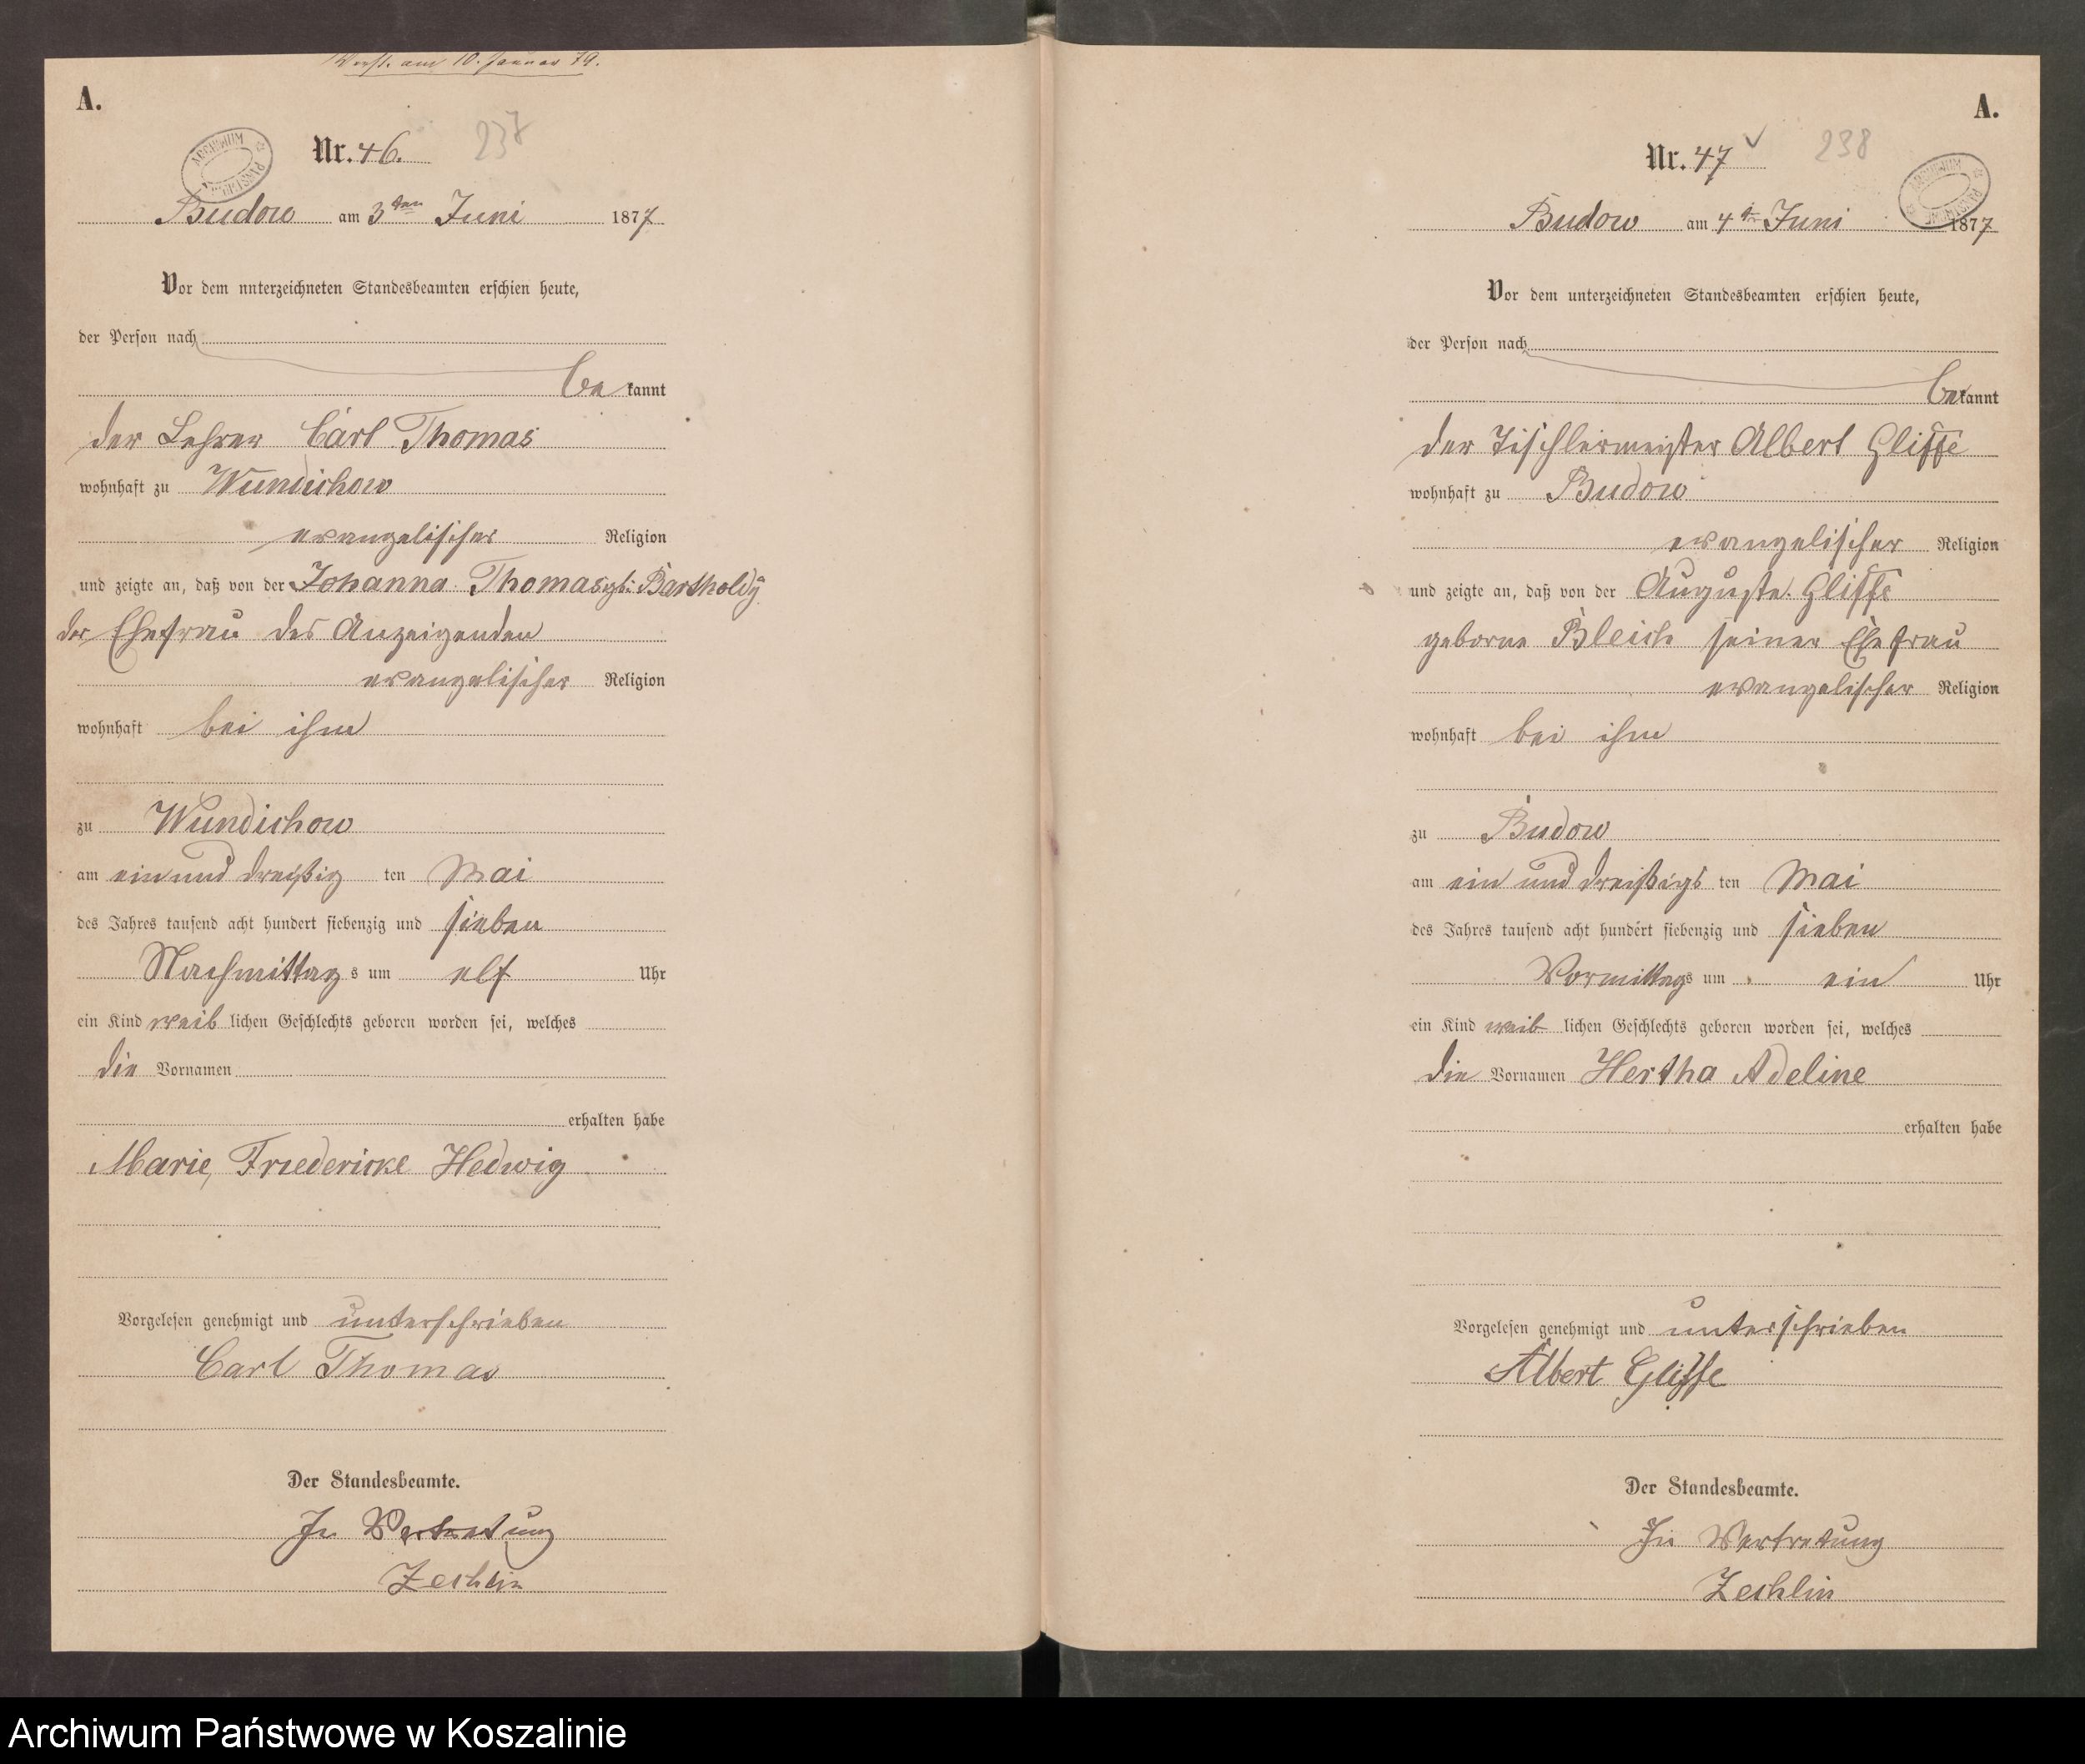 Verst. am 10. Januar 79.
A.
Nr. 46.
237
ARCHIWUM
Budow am 3ten Juni 1877
Vor dem unterzeichneten Standesbeamten erschien heute,
der Person nach
be kannt
der Lehrer Carl Thomas
wohnhaft zu Wundichow
evangelischer Religion
und zeigte an, daß von der Johanna Thomas geb: Bartholdÿ
der Ehefrau des Anzeigenden
evangelischer Religion
wohnhaft bei ihm
zu Wundichow
am ein und dreißig ten Mai
des Jahres tausend acht hundert siebenzig und sieben
Nachmittag s um elf Uhr
ein Kind weib lichen Geschlechts geboren worden sei, welches
die Vornamen
erhalten habe
Marie, Friedericke Hedwig
Vorgelesen genehmigt und unterschrieben
Carl Thomas
Der Standesbeamte.
In Vertretung
Zechlin
A.
Nr. 47
238
ARCHIWUM
Budow am 4ten Juni 1877
Vor dem unterzeichneten Standesbeamten erschien heute,
der Person nach
be kannt
der Tischlermeister Albert Gliffe
wohnhaft zu Budow
evangelischer Religion
und zeigte an, daß von der Auguste Gliffe
geborne Bleich seiner Ehefrau
evangelischer Religion
wohnhaft bei ihm
zu Budow
am ein und dreißigs ten Mai
des Jahres tausend acht hundert siebenzig und sieben
Vormittag s um ein Uhr
ein Kind weib lichen Geschlechts geboren worden sei, welches
die Vornamen Hertha Adeline
erhalten habe
Vorgelesen genehmigt und unterschrieben
Albert Gliffe
Der Standesbeamte.
In Vertretung
Zechlin
Archiwum Państwowe w Koszalinie